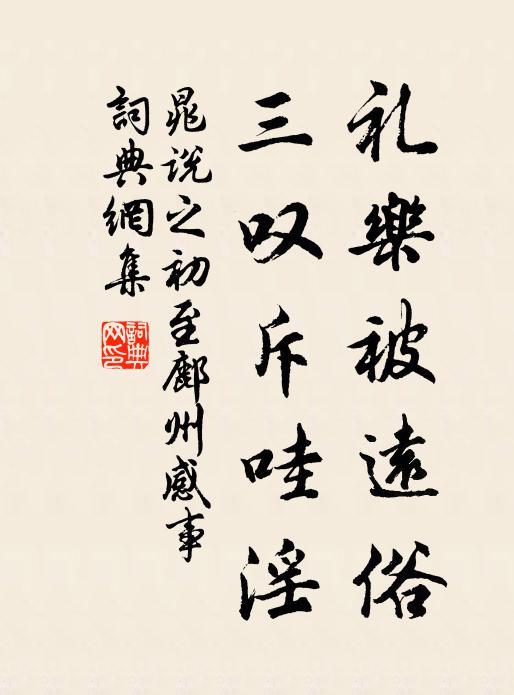 礼樂被遠俗
三叹斥哇淫
晁说之初至鄜州感事
詞典網集
詞典网印